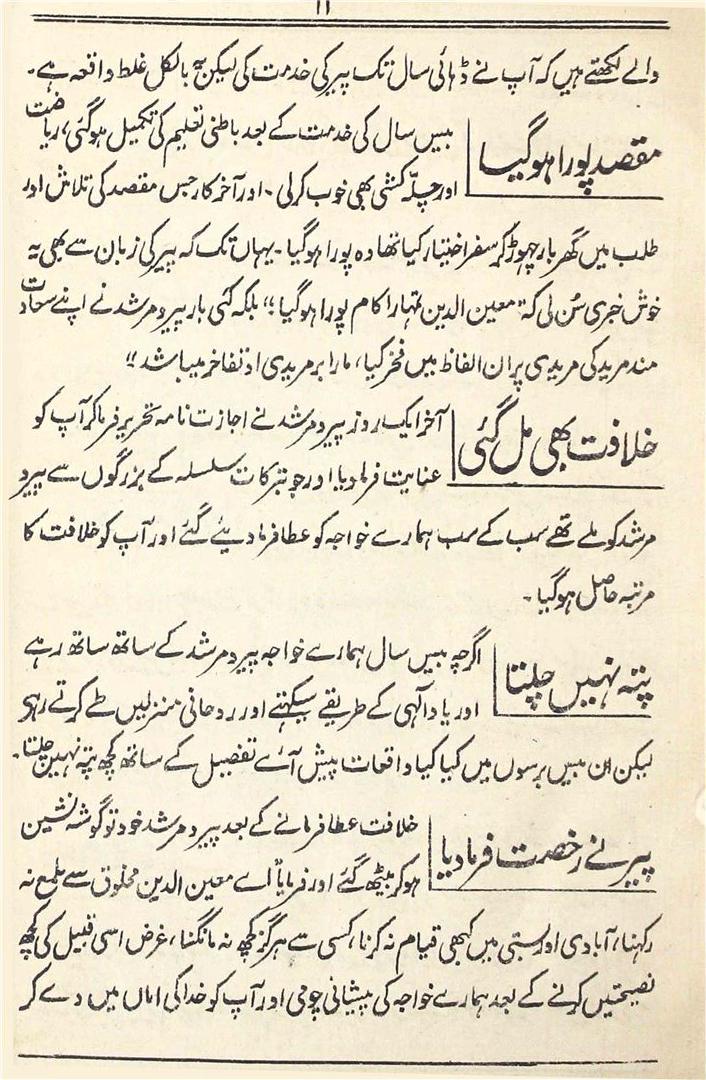 ۱۱
والے لکھتے ہیں کہ آپ نے ڈھائی سال تک پیر کی خدمت کی لیکن یہ بالکل غلط واقعہ ہے۔
مقصد پورا ہو گیا
بیس سال کی خدمت کے بعد باطنی تعلیم کی تکمیل ہو گئی، ریاضت
اور چلّہ کشی بھی خوب کر لی ۔ اور آخر کار جس مقصد کی تلاش اور
طلب میں گھر بار چھوڑ کر سفر اختیار کیا تھا وہ پورا ہو گیا ۔ یہاں تک کہ پیر کی زبان سے بھی یہ
خوش خبری سُن لی کہ "معین الدین تمہارا کام پورا ہو گیا" بلکہ کئی بار پیر و مرشد نے اپنے سعادت
مند مرید کی مریدی پر ان الفاظ میں فخر کیا، مارا بر مریدی او تفاخر میباشد"
خلافت بھی مل گئی
آخر ایک روز پیر و مرشد نے اجازت نامہ تحریر فرما کر آپ کو
عنایت فرما دیا اور جو تبرکات سلسلہ کے بزرگوں سے پیر و
مرشد کو ملے تھے سب کے سب ہمارے خواجہ کو عطا فرما دیئے گئے اور آپ کو خلافت کا
مرتبہ حاصل ہو گیا ۔
پتہ نہیں چلتا
اگرچہ بیس سال ہمارے خواجہ پیر و مرشد کے ساتھ ساتھ رہے
اور یاد الٰہی کے طریقے سیکھتے اور روحانی منزلیں طے کرتے رہے
لیکن ان بیس برسوں میں کیا کیا واقعات پیش آئے تفصیل کے ساتھ کچھ پتہ نہیں چلتا۔
پیر نے رخصت فرما دیا
خلافت عطا فرمانے کے بعد پیر و مرشد خود تو گوشہ نشین
ہو کر بیٹھ گئے اور فرمایا "اے معین الدین مخلوق سے طمع نہ
رکھنا، آبادی اور بستی میں کبھی قیام نہ کرنا، کسی سے ہرگز کچھ نہ مانگنا، غرض اسی قبیل کی کچھ
نصیحتیں کرنے کے بعد ہمارے خواجہ کی پیشانی چومی اور آپ کو خدا کی اماں میں دے کر